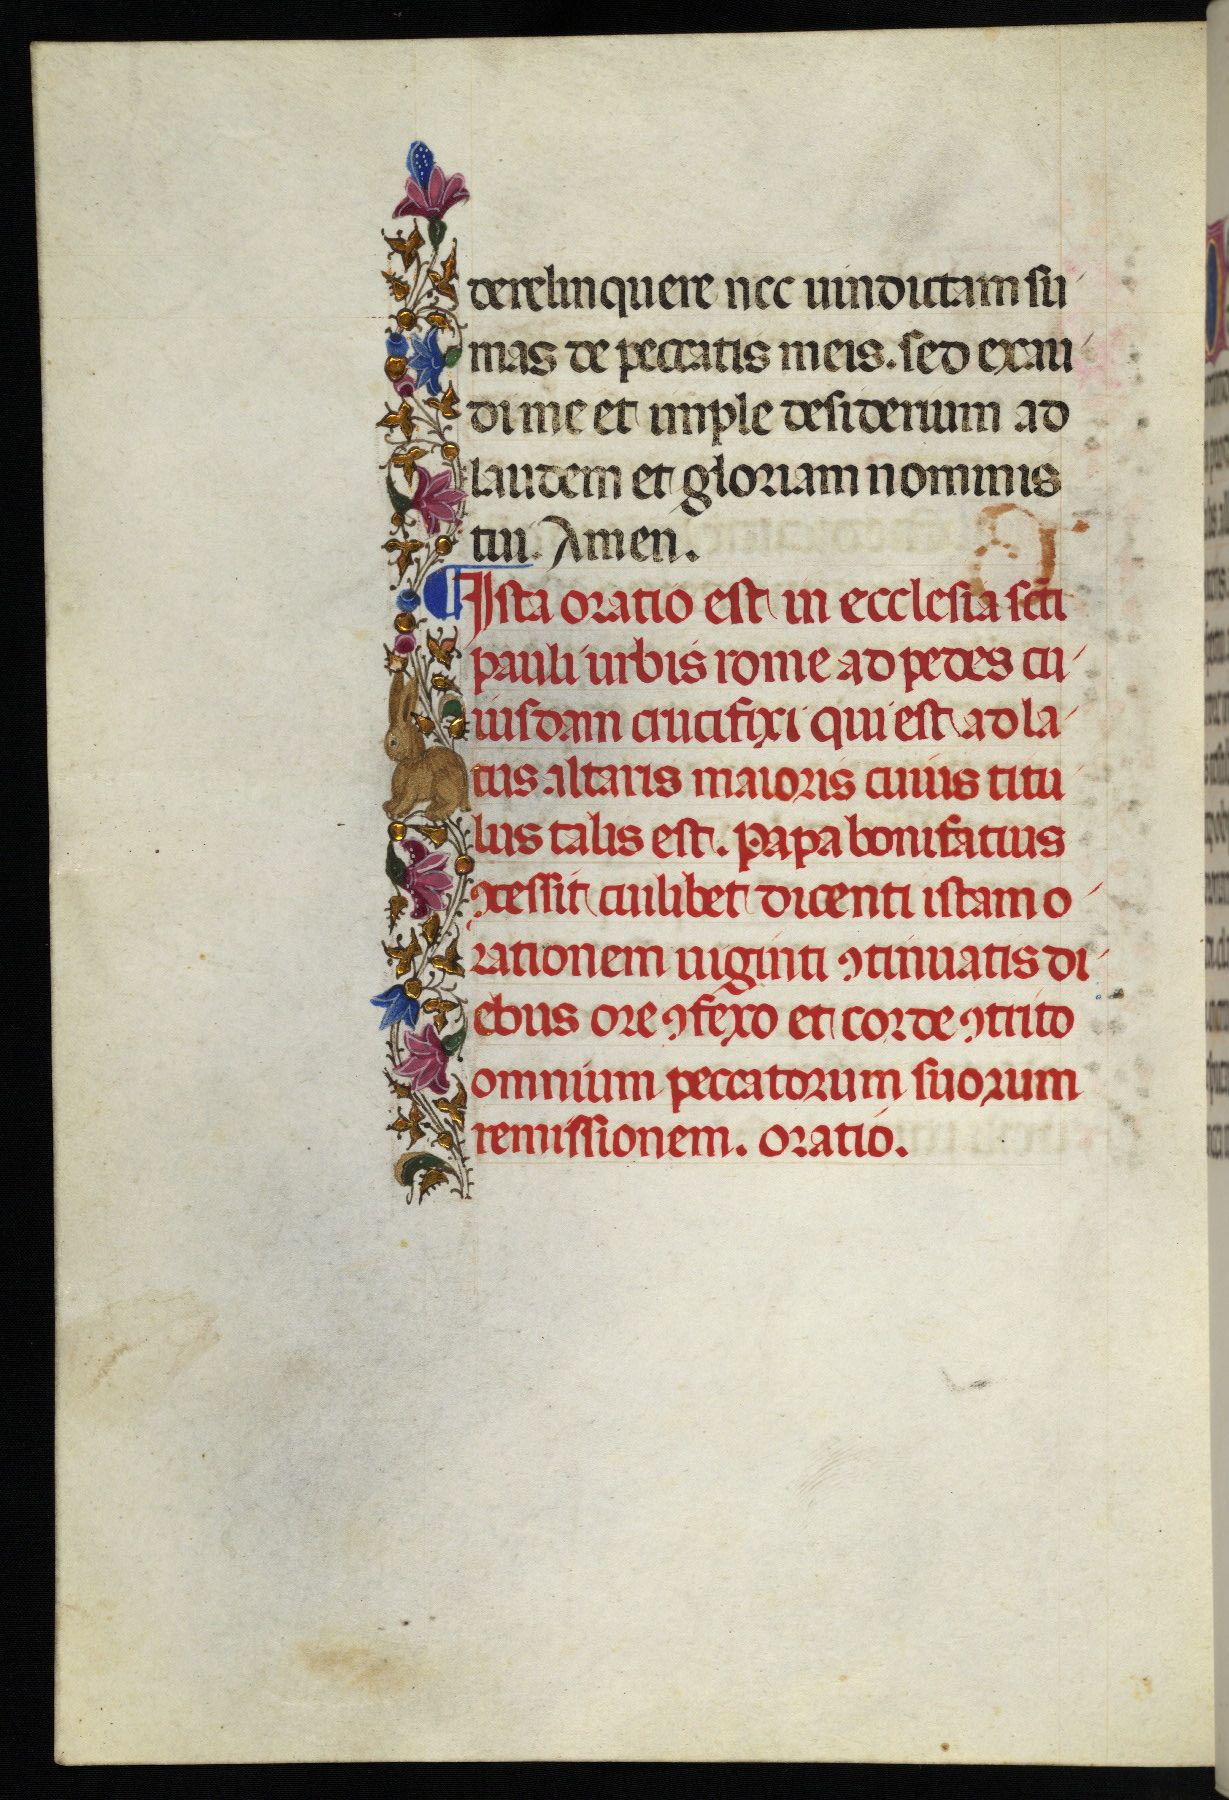 derelinquere nec uindictam su
mas de peccatis meis. sed exau
di me et imple desiderium ad
laudem et gloriam nominis
tui. Amen.
¶ Ista oratio est in ecclesia scti
pauli urbis rome ad pedes cu
iusdam crucifixi qui est ad la
tus altaris maioris cuius titu
lus talis est. Papa bonifatius
ꝯcessit cuilibet dicenti istam o
rationem uiginti ꝯtinuatis di
ebus ore ꝯfexo et corde ꝯtrito
omnium peccatorum suorum
remissionem. oratio.